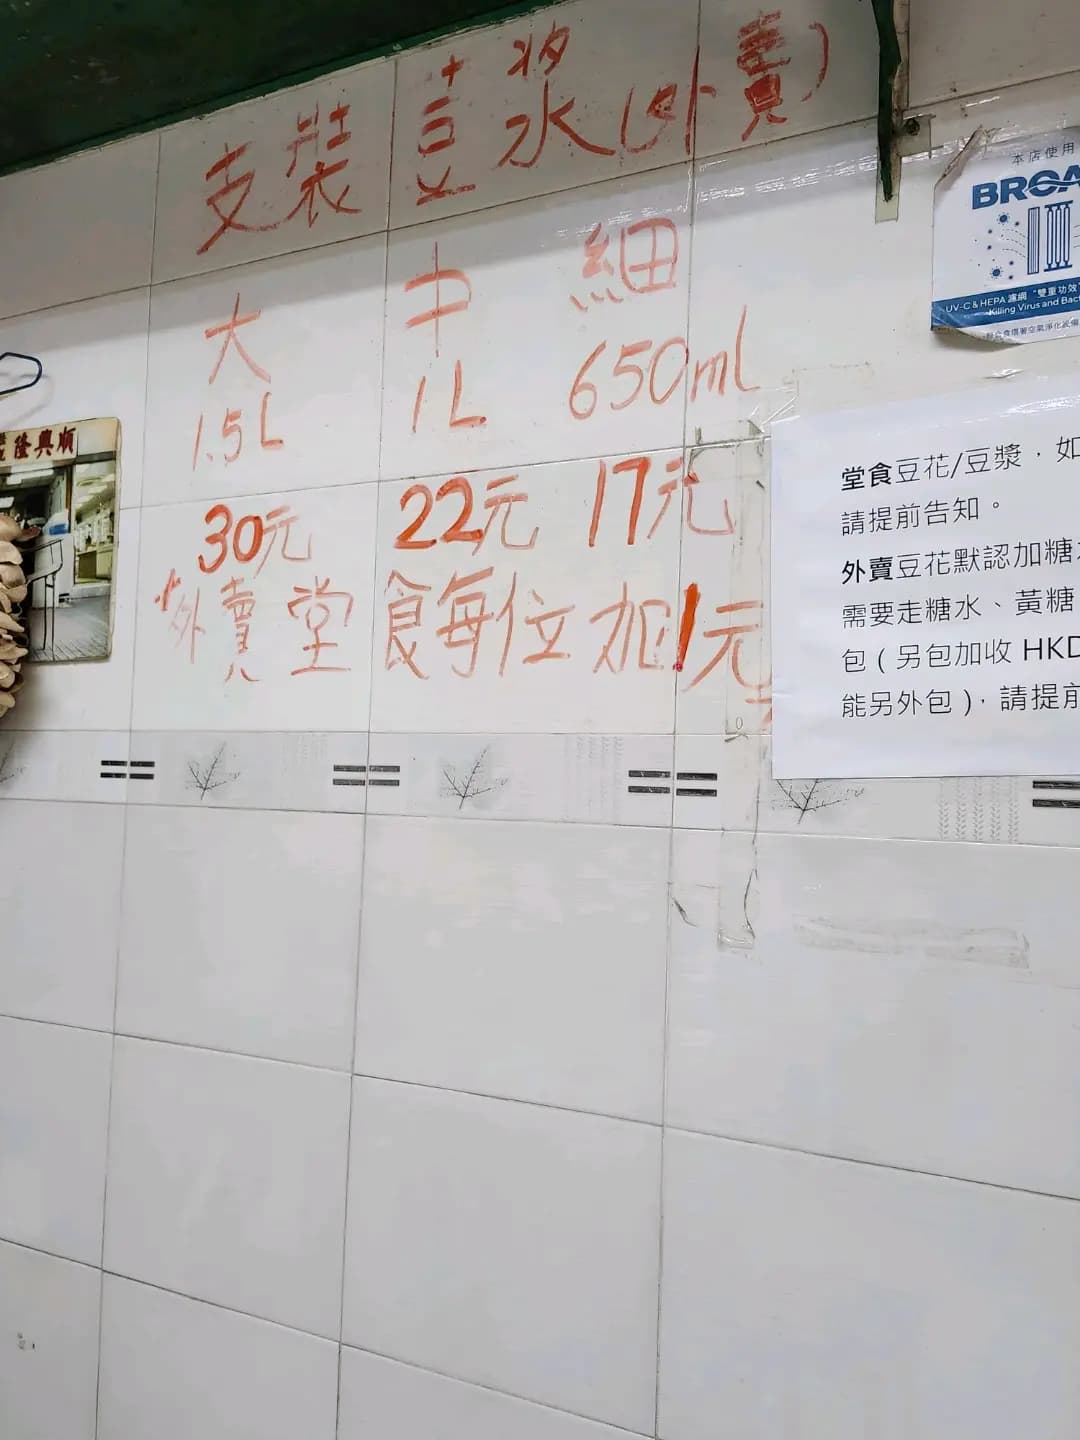 支裝豆漿(外賣)
大 中 細
1.5L 1L 650ml
30元 22元 17元
外賣堂食每位加1元
隆興順
本店使用
BROA
UV-C & HEPA 濾網 "雙重功效"
Killing Virus and Bact
堂食豆花/豆漿，如
請提前告知。
外賣豆花默認加糖
需要走糖水、黃糖
包 ( 另包加收 HKD
能另外包 )，請提前